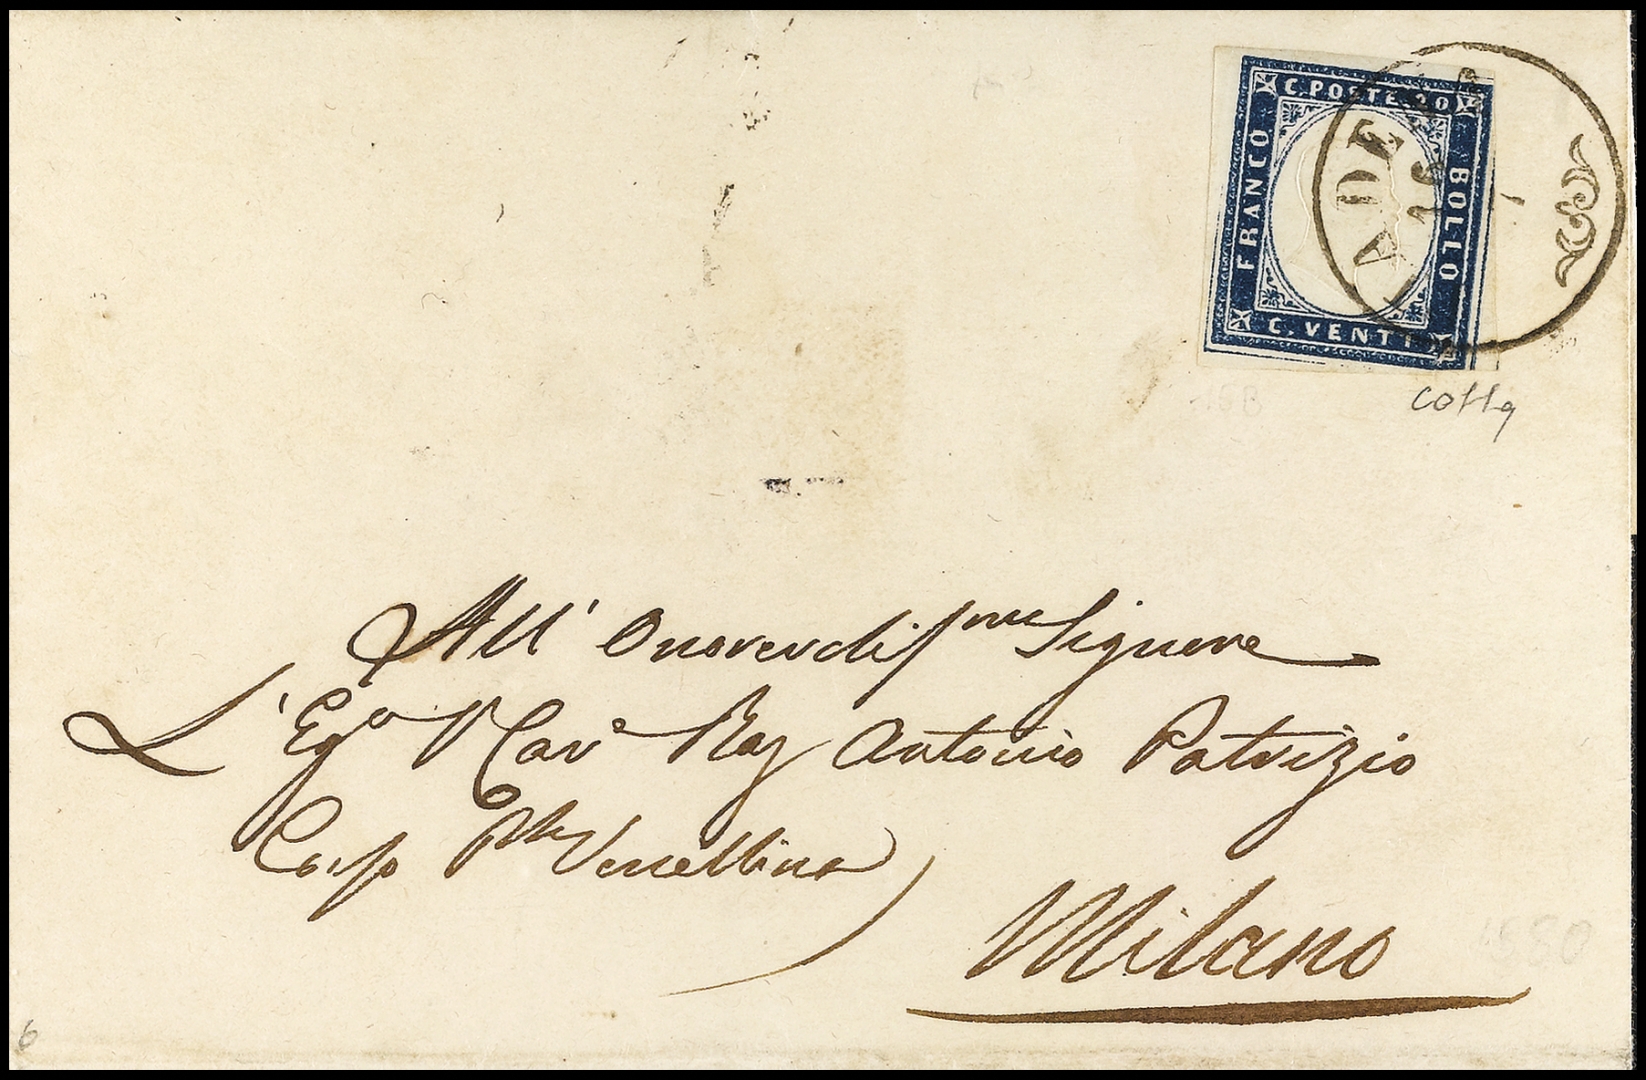 C. POSTE 20
FRANCO
BOLLO
C. VENTI
16
cotta
All' Onorevolis.mo Signore
L' Ego Cav.e Rag Antonio Patrizio
Corso Pta Vercellina
Milano
6